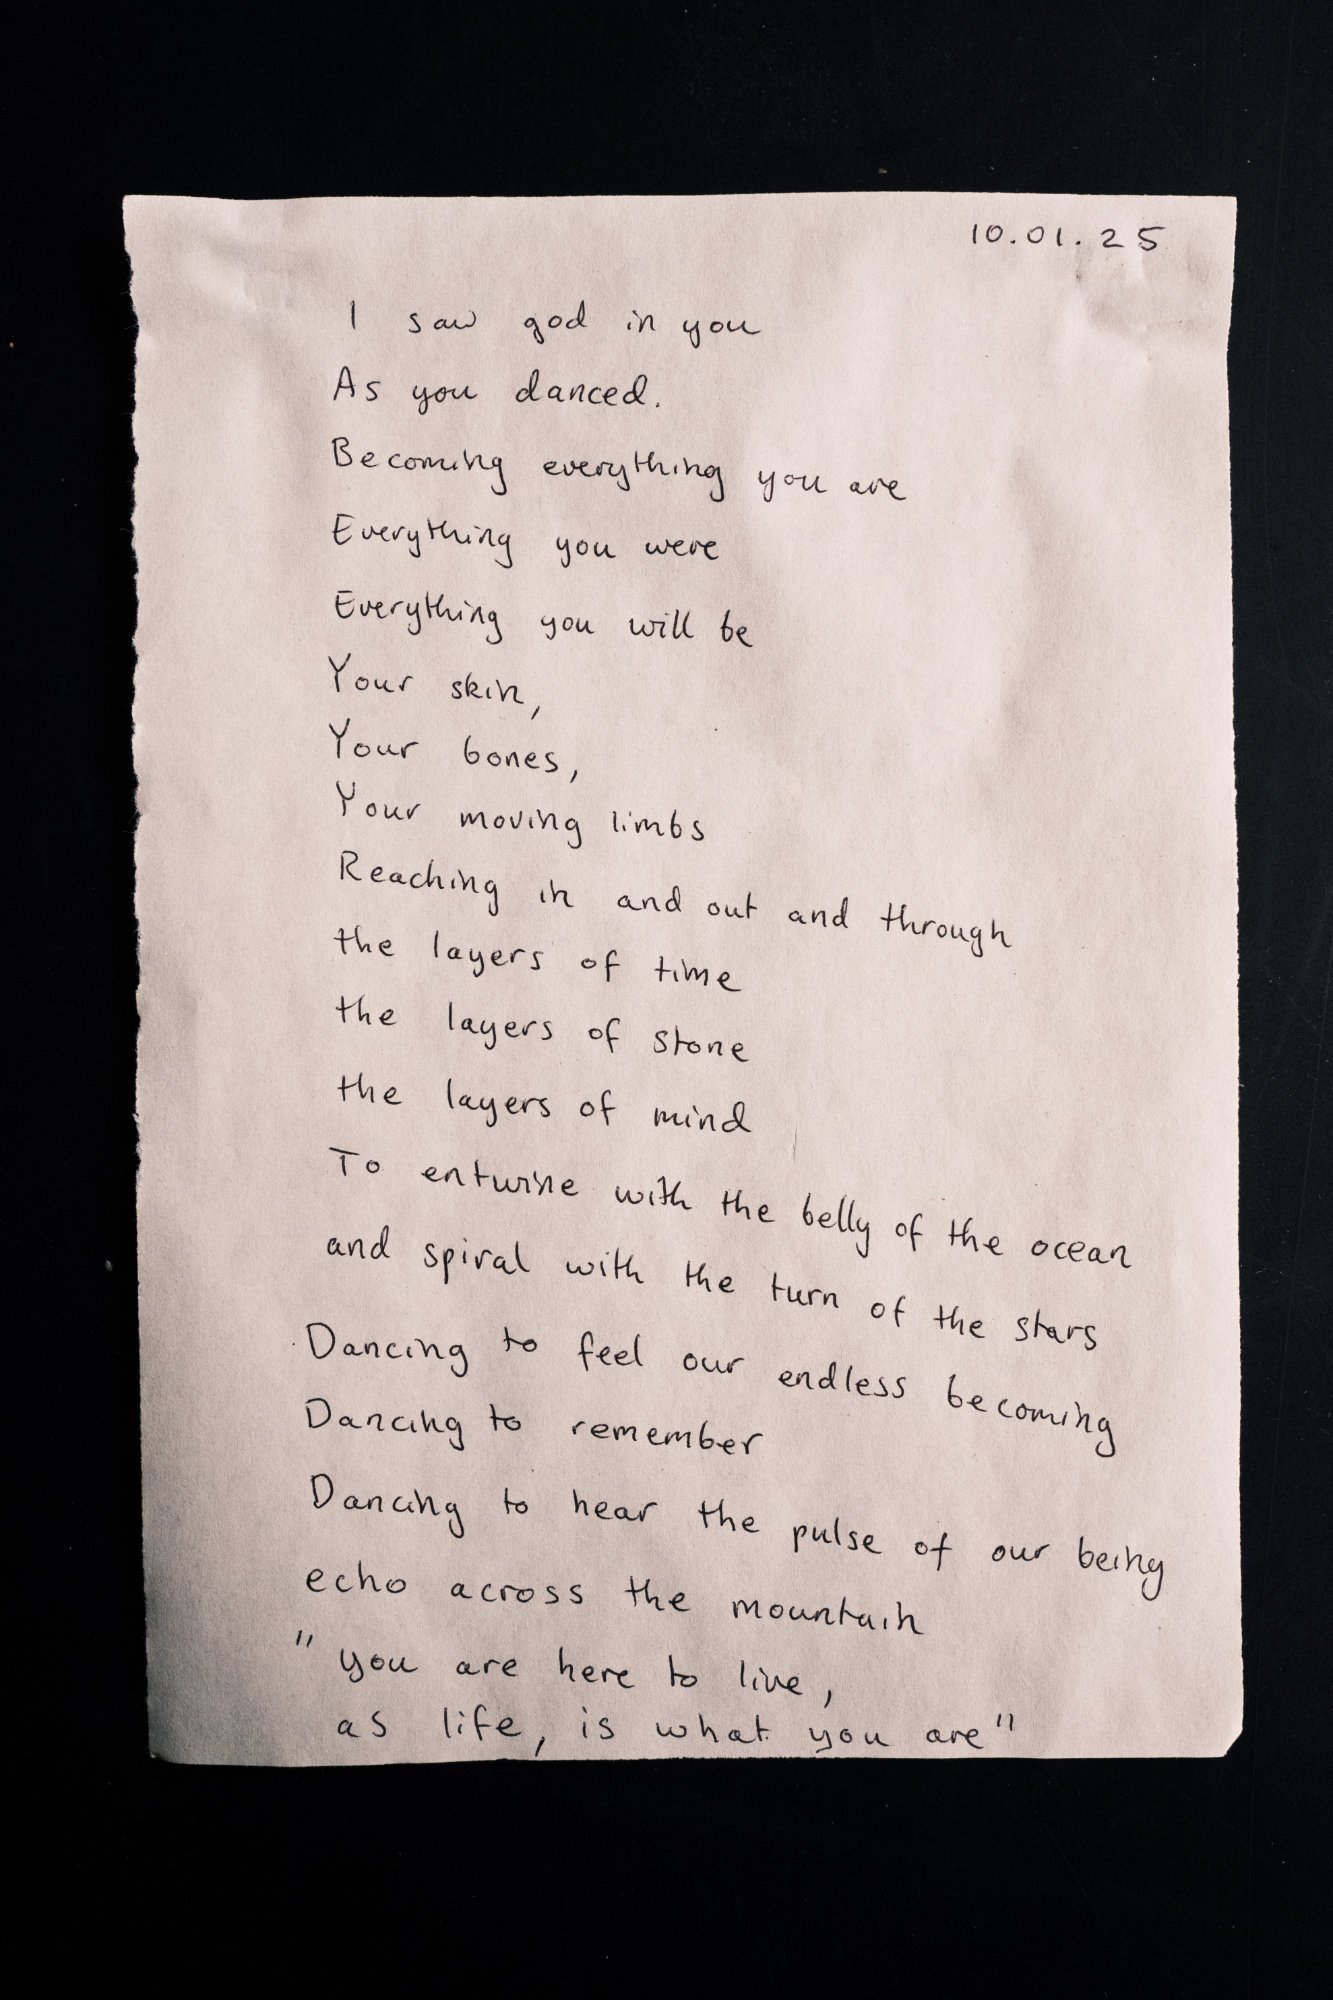 10.01.25
I saw god in you
As you danced.
Becoming everything you are
Everything you were
Everything you will be
Your skin,
Your bones,
Your moving limbs
Reaching in and out and through
the layers of time
the layers of stone
the layers of mind
To entwine with the belly of the ocean
and spiral with the turn of the stars
Dancing to feel our endless becoming
Dancing to remember
Dancing to hear the pulse of our being
echo across the mountain
"you are here to live,
as life, is what you are"